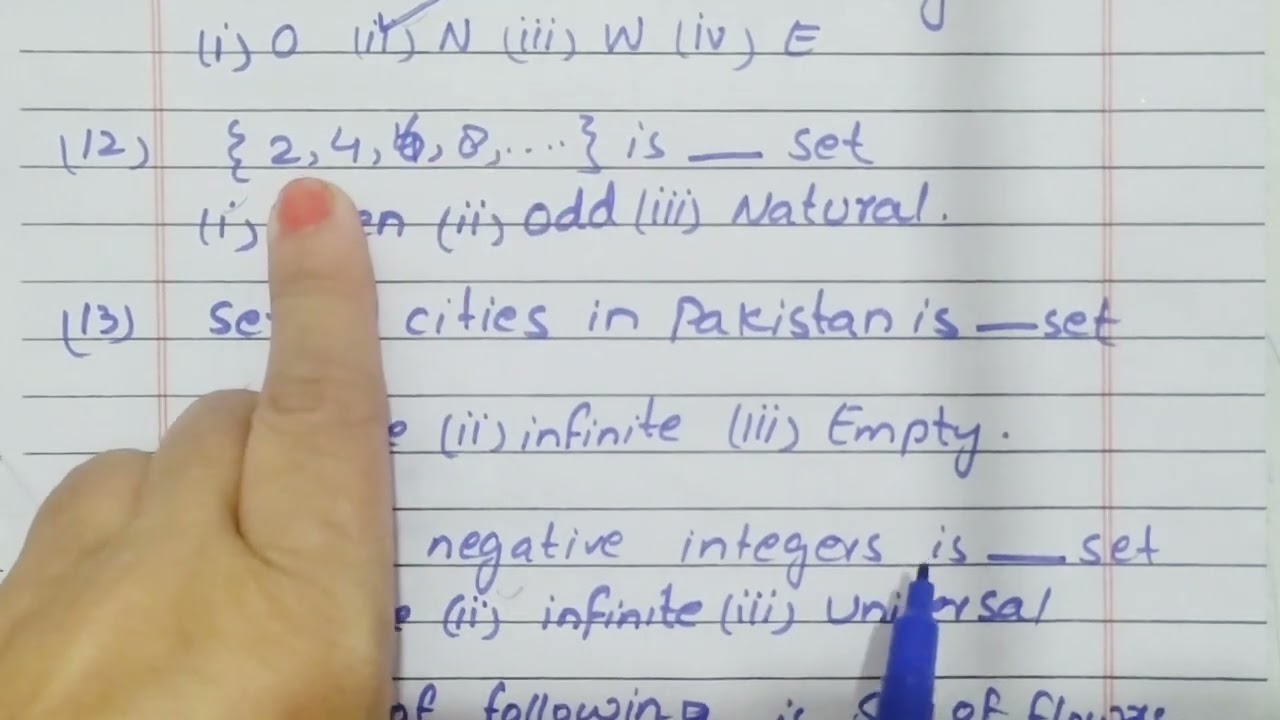 (i) O (ii) N (iii) W (iv) E
(12) { 2, 4, 6, 8, .... } is __ set
(i) en (ii) Odd (iii) Natural.
(13) Se cities in Pakistan is __ set
e (ii) infinite (iii) Empty.
negative integers is __ set
e (ii) infinite (iii) Universal
of following is of